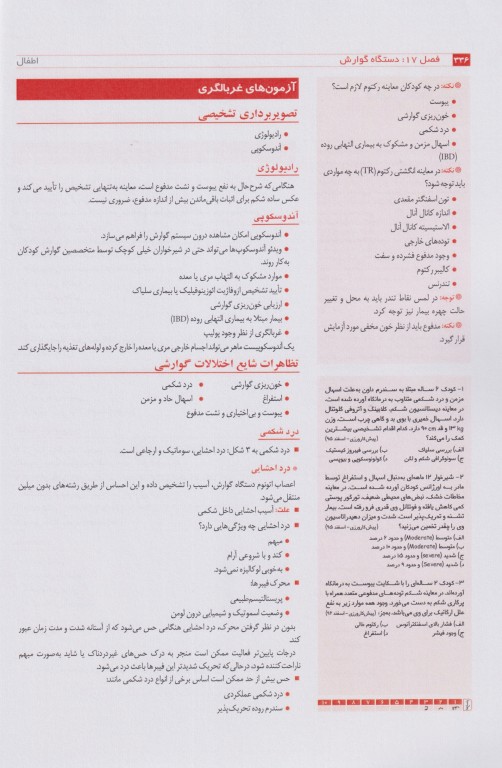 ۳۳۶
فصل ۱۷: دستگاه گوارش
اطفال
نکته: در چه کودکان معاینه رکتوم لازم است؟
پیوست
خون‌ریزی گوارشی
درد شکمی
اسهال مزمن و مشکوک به بیماری التهابی روده
(IBD)
نکته: در معاینه انگشتی رکتوم (TR) به چه مواردی
باید توجه شود؟
تون اسفنگتر مقعدی
اندازه کانال آنال
الاستیسیته کانال آنال
توده‌های خارجی
وجود مدفوع فشرده و سفت
کالیبر رکتوم
تندرنس
توجه: در لمس نقاط تندر باید به محل و تغییر
حالت چهره بیمار نیز توجه کرد.
نکته: مدفوع باید از نظر خون مخفی مورد آزمایش
قرار گیرد.
۱- کودک ۶ ساله مبتلا به سندرم داون به‌علت اسهال
مزمن و درد شکمی متناوب به درمانگاه آورده شده است.
در معاینه دیستانسیون شکم، کلابینگ و آتروفی گلوتئال
دارد. اسهال خمیری با بوی بد و گاهی چرب است. وزن
۱۳ kg و قد ۹۰ cm دارد. کدام اقدام تشخیصی بیشترین
کمک را می‌کند؟ (پیش‌کارورزی - اسفند ۹۵)
الف) بررسی سلیاک
ب) بررسی فیبروز کیستیک
ج) سونوگرافی شکم و لگن
د) کولونوسکوپی و بیوپسی
۲- شیرخوار ۱۲ ماهه‌ای به‌دنبال اسهال و استفراغ توسط
مادر به اورژانس کودکان آورده شده است. در معاینه
مخاطات خشک، نبض‌های محیطی ضعیف، تورگور پوستی
کمی کاهش یافته و فونتانل وی قدری فرو رفته است. بیمار
تشنه و تحریک‌پذیر است. شدت و میزان دهیدراتاسیون
وی را چقدر تخمین می‌زنید؟ (پیش‌کارورزی - اسفند ۹۵)
الف) متوسط (Moderate) و حدود ۶ درصد
ب) متوسط (Moderate) و حدود ۱۰ درصد
ج) شدید (severe) و حدود ۱۵ درصد
د) شدید (Severe) و حدود ۹ درصد
۳- کودک ۴ ساله‌ای را با شکایت یبوست به درمانگاه
آورده‌اند. در معاینه شکم توده‌های مدفوعی متعدد همراه با
پرکاری شکم به دست می‌خورد. وجود همه موارد زیر به نفع
علل ارگانیک برای وی می‌باشد، به‌جز:
الف) فشار بالای اسفنگتر آنوس
ب) رکتوم خالی
ج) وجود فیشر
د) استفراغ
آزمون‌های غربالگری
تصویربرداری تشخیصی
رادیولوژی
آندوسکوپی
رادیولوژی
هنگامی که شرح‌حال به نفع پیوست و نشت مدفوع است، معاینه به‌تنهایی تشخیص را تأیید می‌کند و
عکس ساده شکم برای اثبات باقی‌ماندن بیش از اندازه مدفوع، ضروری نیست.
آندوسکوپی
آندوسکوپی امکان مشاهده درون سیستم گوارش را فراهم می‌سازد.
ویدئو آندوسکوپ‌ها می‌تواند حتی در شیرخواران خیلی کوچک توسط متخصصین گوارش کودکان
به‌کار روند.
موارد مشکوک به التهاب مری یا معده
تأیید تشخیص ازوفاژیت ائوزینوفیلیک یا بیماری سلیاک
ارزیابی خون‌ریزی گوارشی
بیمار مبتلا به بیماری التهابی روده (IBD)
غربالگری از نظر وجود پولیپ
یک آندوسکوپیست ماهر می‌تواند اجسام خارجی مری یا معده را خارج کرده و لوله‌های تغذیه را جایگذاری کند.
تظاهرات شایع اختلالات گوارشی
خون‌ریزی گوارشی
درد شکمی
استفراغ
اسهال حاد و مزمن
یبوست و بی‌اختیاری و نشت مدفوع
درد شکمی
درد شکمی به ۳ شکل: درد احشایی، سوماتیک و ارجاعی است.
درد احشایی
اعصاب اتونوم دستگاه گوارش، آسیب را تشخیص داده و این احساس از طریق رشته‌های بدون میلین
منتقل می‌شود.
علت: آسیب احشایی داخل شکمی
درد احشایی چه ویژگی‌هایی دارد؟
مبهم
کند و با شروعی آرام
به‌خوبی لوکالیزه نمی‌شود.
محرک فیبرها:
پریستالتیسم طبیعی
وضعیت اسموتیک و شیمیایی درون لومن
بدون در نظر گرفتن محرک، درد احشایی هنگامی حس می‌شود که از آستانه شدت و مدت زمان عبور
کند.
درجات پایین‌تر فعالیت ممکن است منجر به درک حس‌های غیردردناک یا شاید به‌صورت مبهم
ناراحت‌کننده شود، درحالی‌که تحریک شدیدتر این فیبرها باعث درد می‌شود.
حس بیش از حد ممکن است اساس برخی از انواع درد شکمی مانند:
درد شکمی عملکردی
سندروم روده تحریک‌پذیر